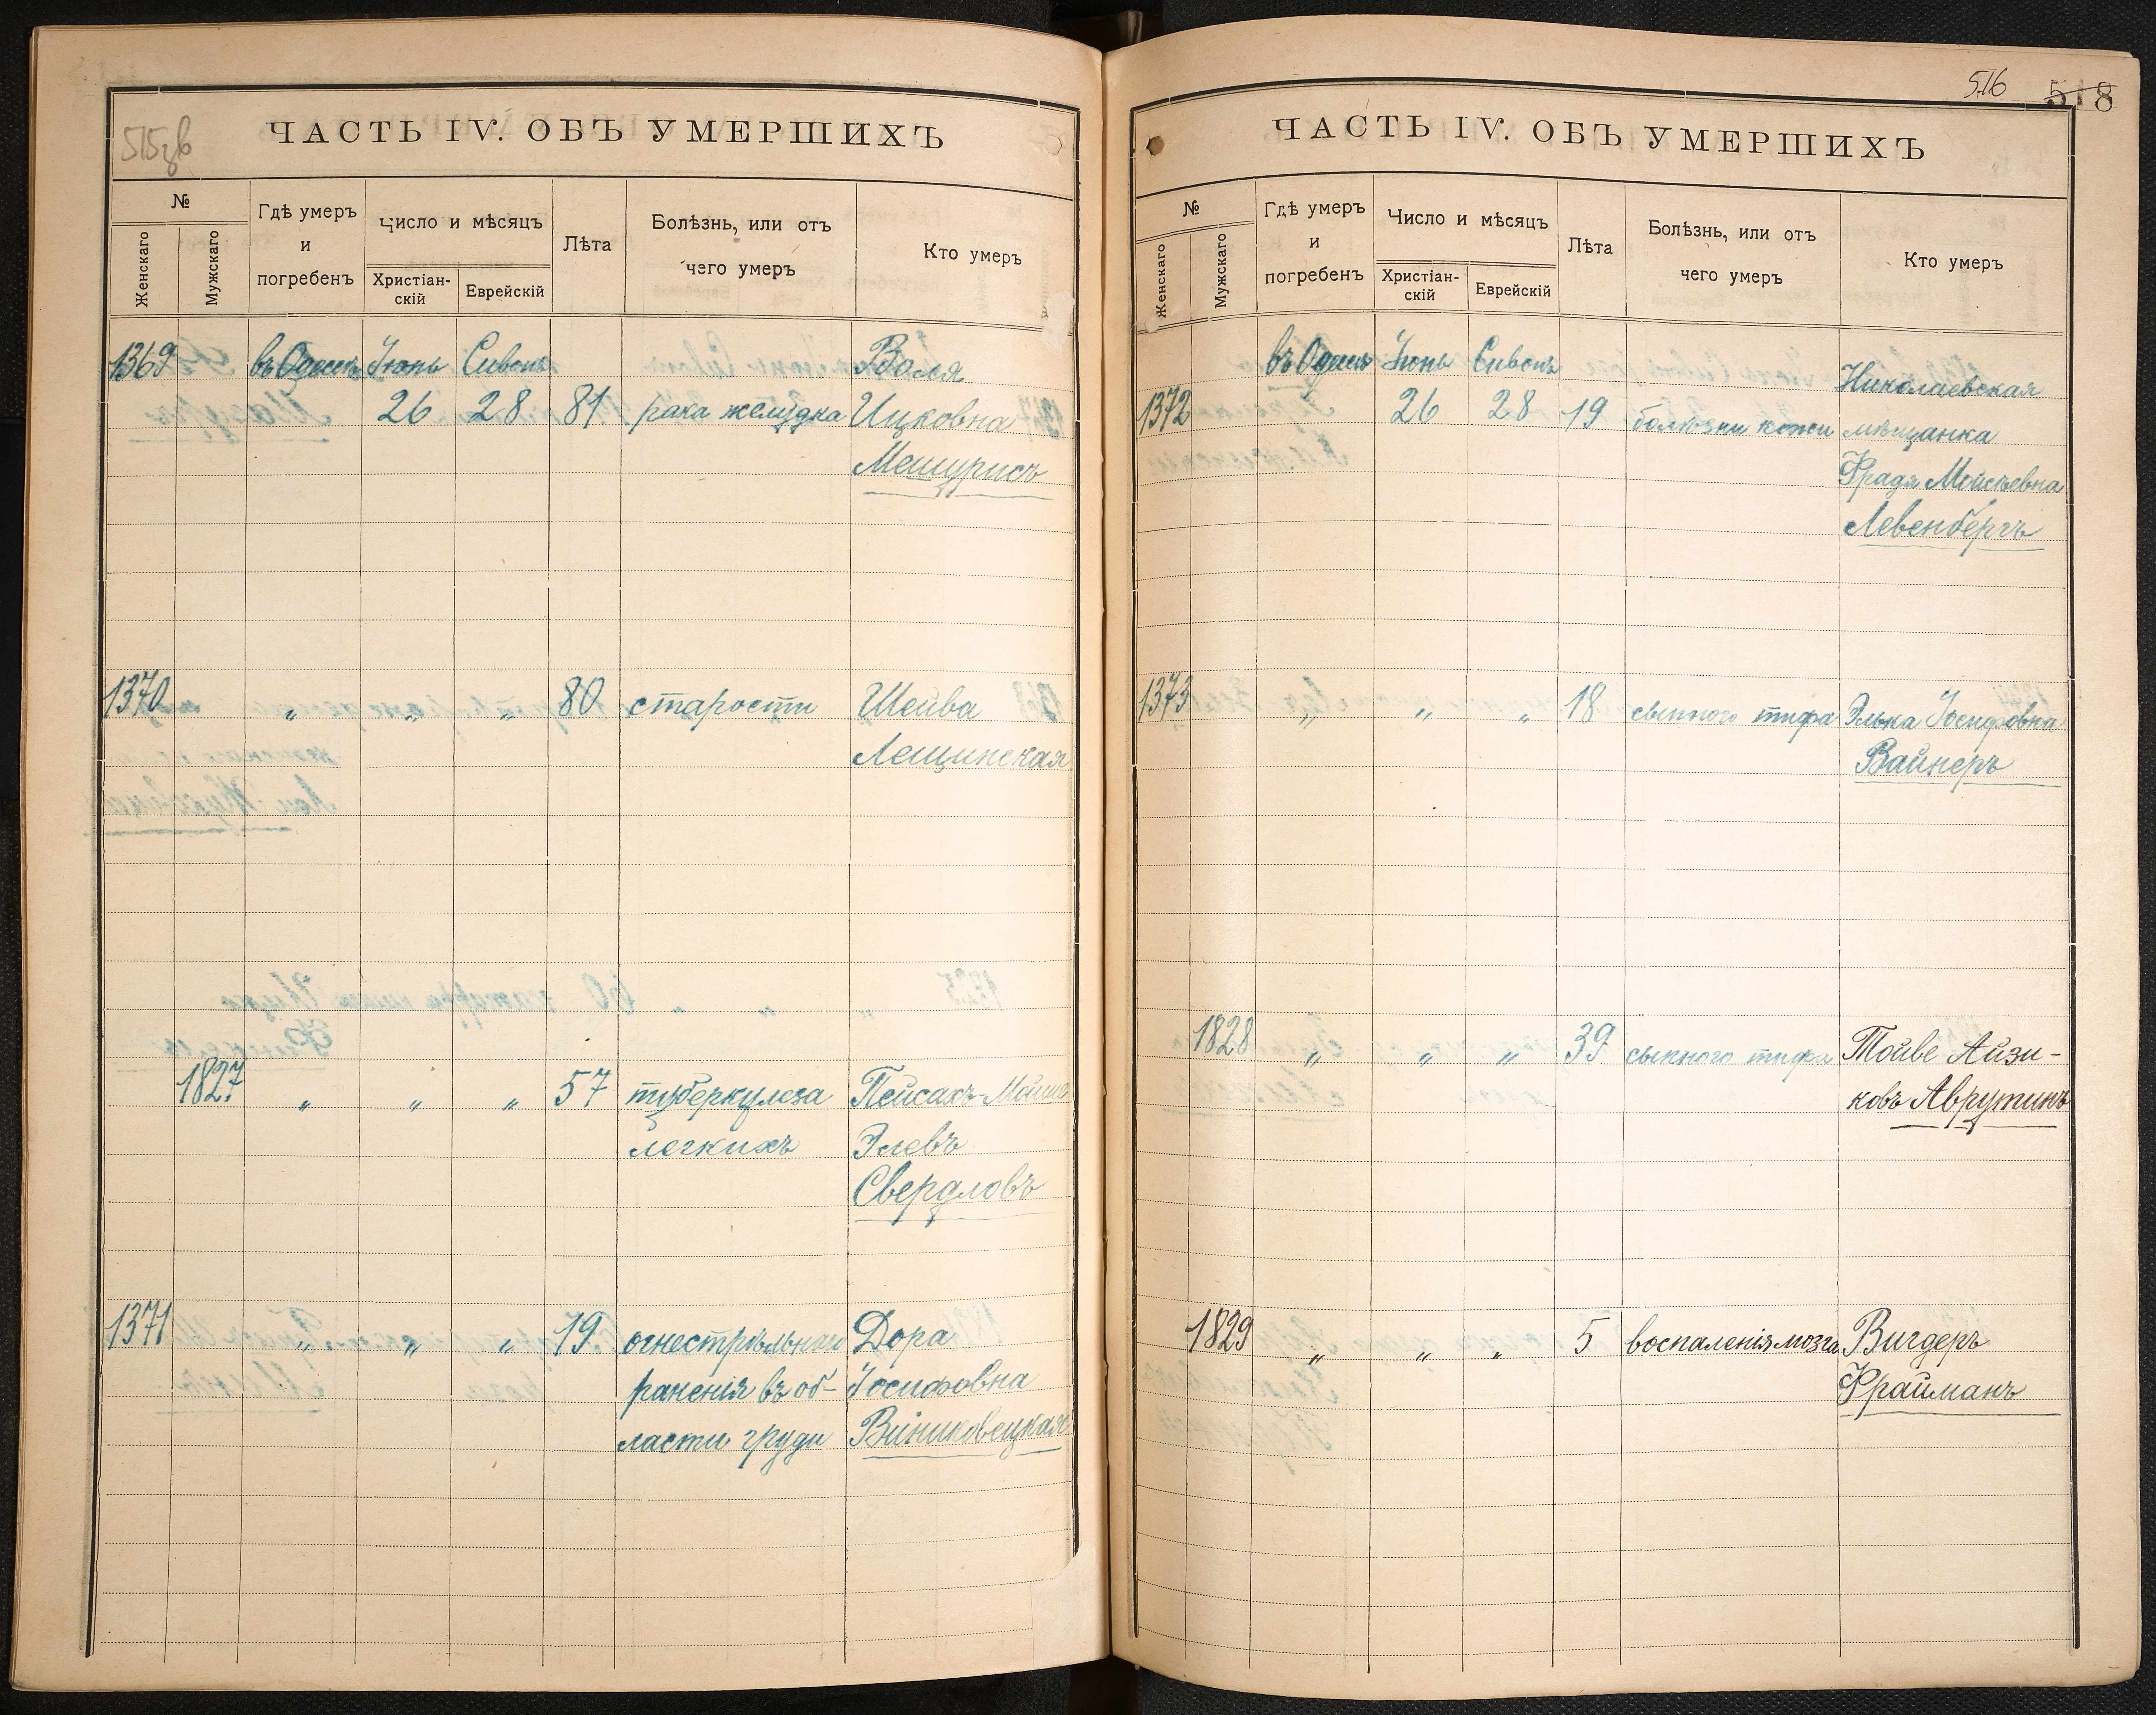 515 зв
ЧАСТЬ IV. ОБЪ УМЕРШИХЪ
№
Женскаго
Мужскаго
Гдѣ умеръ
и
погребенъ
Число и мѣсяцъ
Христіан-
скій
Еврейскій
Лѣта
Болѣзнь, или отъ
чего умеръ
Кто умеръ
1369 въ Одессѣ Іюнь Сивонъ Воля
26 28 81 рака желудка Ицковна
Мешурисъ
1370 " " " 80 старости Шейва
Лещинская
1827 " " " 57 туберкулеза Пейсахъ-Мойше
легкихъ Элевъ
Свердловъ
1371 " " " 19 огнестрѣльнаго Дора
раненія въ об- Іосифовна
ласти груди Виниковецкая
516 518
ЧАСТЬ IV. ОБЪ УМЕРШИХЪ
№
Женскаго
Мужскаго
Гдѣ умеръ
и
погребенъ
Число и мѣсяцъ
Христіан-
скій
Еврейскій
Лѣта
Болѣзнь, или отъ
чего умеръ
Кто умеръ
въ Одессѣ Іюнь Сивонъ Николаевская
1372 26 28 19 болѣзни кожи мѣщанка
Фрадя Мойсѣевна
Левенбергъ
1373 " " " 18 сыпного тифа Элька Іосифовна
Вайнеръ
1828 " " " 39 сыпного тифа Тойве Айзи-
ковъ Аврутинъ
1829 " " " 5 воспаленія мозга Вигдеръ
Фрайманъ